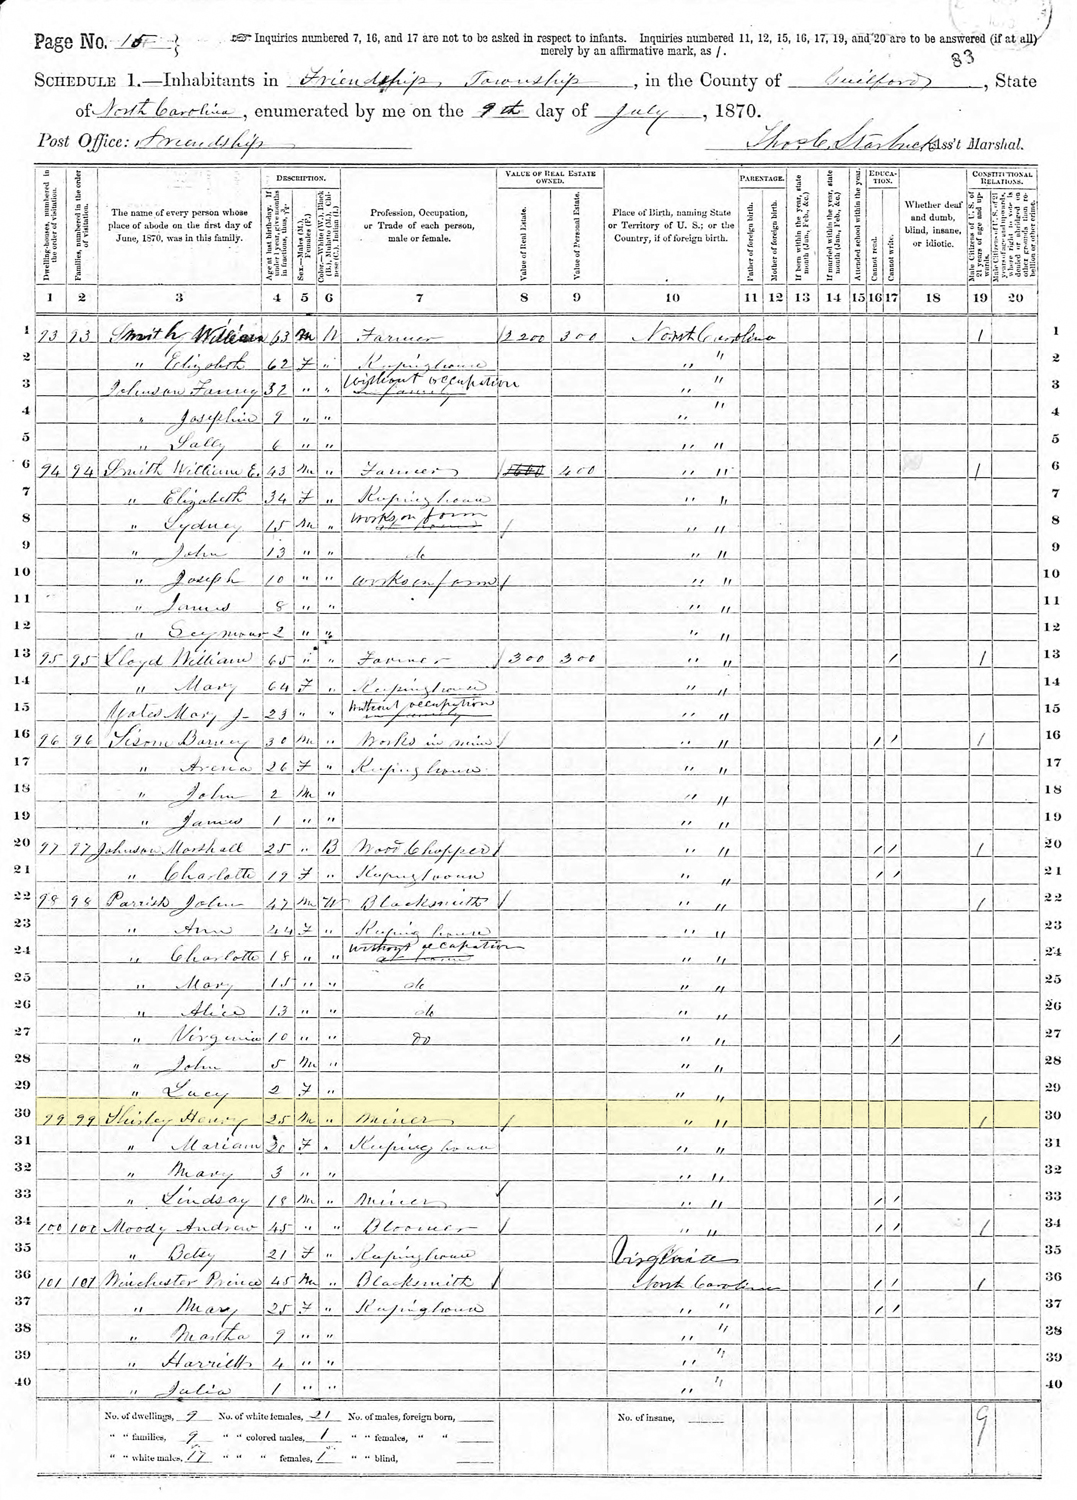 Page No. 15
Inquiries numbered 7, 16, and 17 are not to be asked in respect to infants. Inquiries numbered 11, 12, 15, 16, 17, 19, and 20 are to be answered (if at all) merely by an affirmative mark, as /.
83
SCHEDULE 1.—Inhabitants in Friendship Township, in the County of Guilford, State
of North Carolina, enumerated by me on the 9th day of July, 1870.
Post Office: Friendship
Thos C. Starbuck Ass't Marshal.
Dwelling-houses, numbered in the order of visitation.
Families, numbered in the order of visitation.
The name of every person whose place of abode on the first day of June, 1870, was in this family.
DESCRIPTION.
Age at last birth-day. If under 1 year, give months in fractions, thus, 3/12.
Sex.—Males (M.), Females (F.)
Color.—White (W.), Black (B.), Mulatto (M.), Chinese (C.), Indian (I.)
Profession, Occupation, or Trade of each person, male or female.
VALUE OF REAL ESTATE OWNED.
Value of Real Estate.
Value of Personal Estate.
Place of Birth, naming State or Territory of U. S.; or the Country, if of foreign birth.
PARENTAGE.
Father of foreign birth.
Mother of foreign birth.
If born within the year, state month (Jan., Feb., &c.)
If married within the year, state month (Jan., Feb., &c.)
Attended school within the year.
EDUCATION.
Cannot read.
Cannot write.
Whether deaf and dumb, blind, insane, or idiotic.
CONSTITUTIONAL RELATIONS.
Male Citizens of U. S. of 21 years of age and upwards.
Male Citizens of U. S. of 21 years of age and upwards, where right to vote is denied or abridged on other grounds than rebellion or other crime.
1 2 3 4 5 6 7 8 9 10 11 12 13 14 15 16 17 18 19 20
1 93 93 Smith William 63 M W Farmer 2200 300 North Carolina / 1
2 " Elizabeth 62 F " Keeping house " " 2
3 Johnson Fanny 32 " " Without occupation " " 3
4 " Josephin 9 " " " " 4
5 " Sally 6 " " " " 5
6 94 94 Smith William E. 43 M " Farmer 400 " " / 6
7 " Elizabeth 34 F " Keeping house " " 7
8 " Sydney 15 M " Works on farm / " " 8
9 " John 13 " " do " " 9
10 " Joseph 10 " " Works on farm / " " 10
11 " James 8 " " " " 11
12 " Seymour 2 " " " " 12
13 95 95 Lloyd William 65 " " Farmer 300 300 " " / / 13
14 " Mary 64 F " Keeping house " " 14
15 Yates Mary J 23 " " Without occupation " " 15
16 96 96 Sisom Barney 30 M " Works in mine / " " / / / 16
17 " Arena 26 F " Keeping house " " 17
18 " John 2 M " " " 18
19 " James 1 " " " " 19
20 97 97 Johnson Marshall 25 " B Wood Chopper / " " / / / 20
21 " Charlotte 19 F " Keeping house " " / / 21
22 98 98 Parrish John 47 M W Blacksmith / " " / 22
23 " Ann 44 F " Keeping house " " 23
24 " Charlotte 18 " " Without occupation " " 24
25 " Mary 15 " " do " " 25
26 " Alice 13 " " do " " 26
27 " Virginia 10 " " do " " / 27
28 " John 5 M " " " 28
29 " Lucy 2 F " " " 29
30 99 99 Shirley Henry 25 M " Miner / " " / 30
31 " Mariam 20 F " Keeping house " " 31
32 " Mary 3 " " " " 32
33 " Lindsay 18 M " Miner / " " / / 33
34 100 100 Moody Andrew 45 " " Bloomer / " " / / / 34
35 " Betsy 21 F " Keeping house Virginia 35
36 101 101 Winchester Prince 45 M " Blacksmith / North Carolina / / / 36
37 " Mary 25 F " Keeping house " " / / 37
38 " Martha 9 " " " " 38
39 " Harriett 4 " " " " 39
40 " Julia 1 " " " " 40
No. of dwellings, 9 No. of white females, 21 No. of males, foreign born, No. of insane, 9
" " families, 9 " " colored males, 1 " " females, " "
" " white males, 17 " " " females, 1 " " blind,